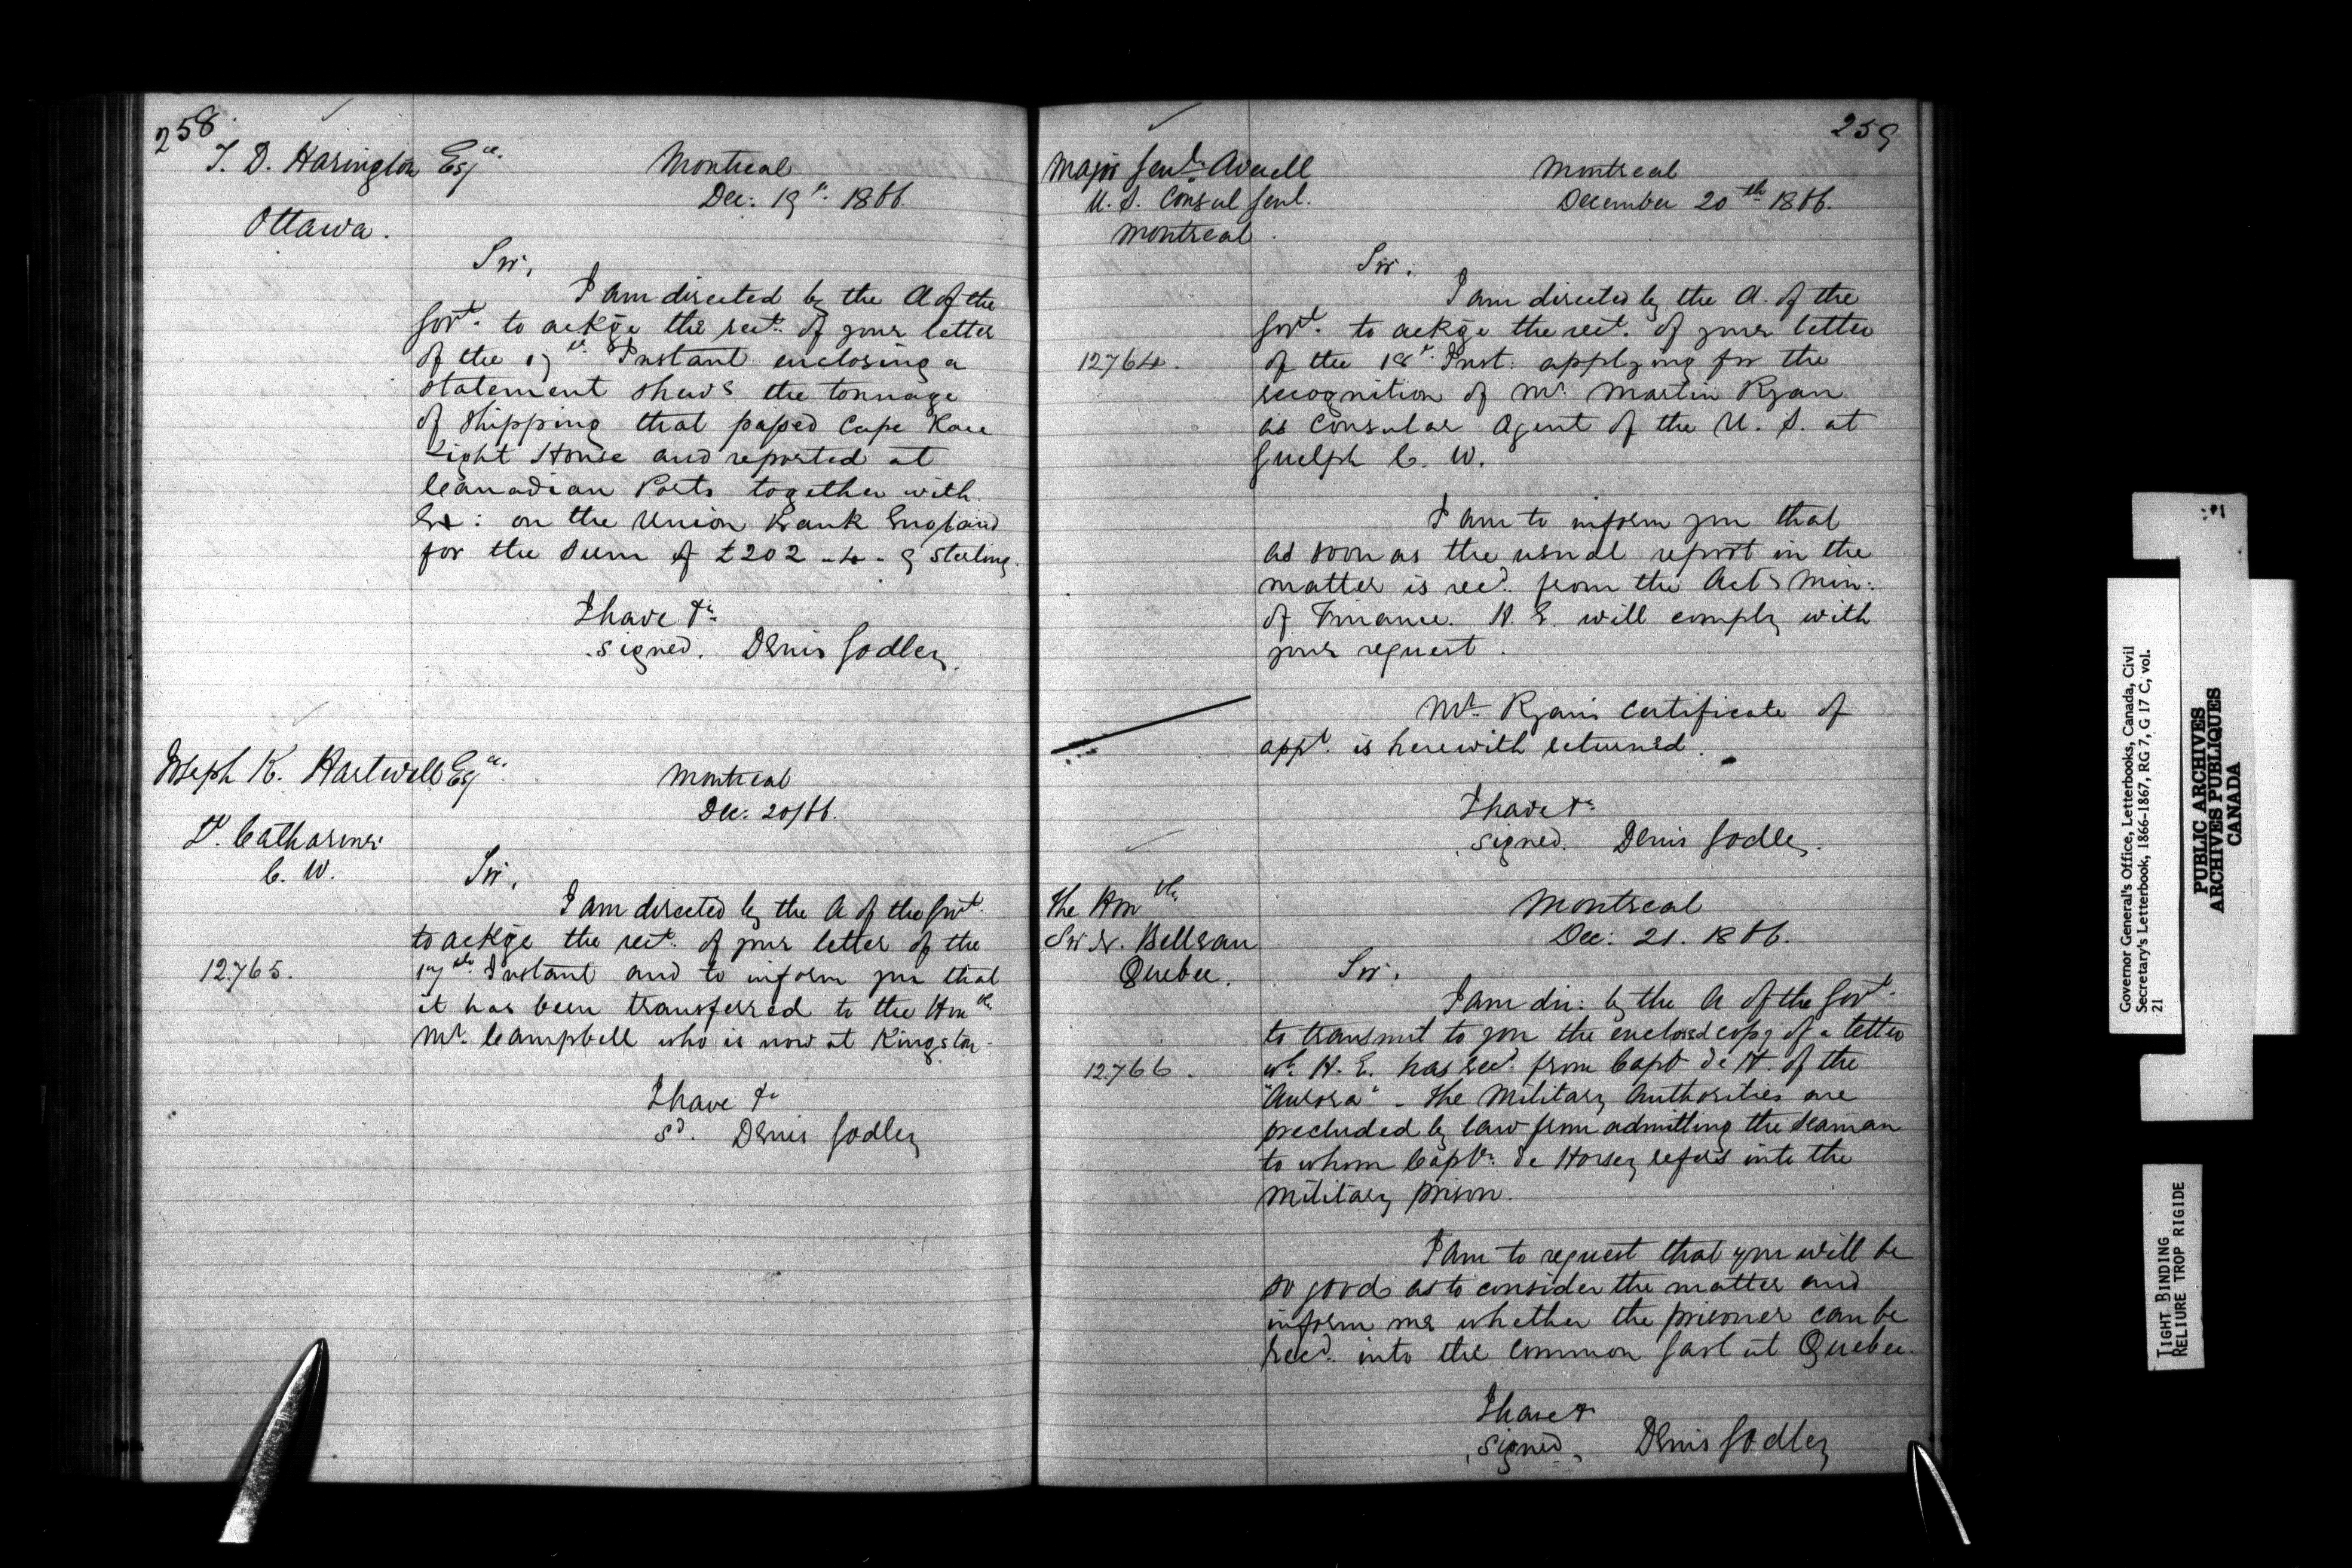 258.
T. D. Harington Esqre.
Montreal
Dec: 19th. 1866.
Ottawa.
Sir,
I am directed by the A of the
Govt. to ackge the rect. of your letter
of the 17th. Instant enclosing a
statement shewg the tonnage
of Shipping that passed Cape Race
Light House and reported at
Canadian Ports together with
Ex: on the Union Bank England
for the sum of £202 - 4 - 9 Sterling.
I have &c
signed. Denis Godley.
Joseph K. Hartwell Esqre.
Montreal
Dec: 20/66.
St. Catharines
C. W.
Sir,
I am directed by the A of the Govt.
to ackge the rect. of your letter of the
12765.
17th. Instant and to inform you that
it has been transferred to the Honble
Mr. Campbell who is now at Kingston.
I have &c
Sd. Denis Godley
259
Major Genl. Averell
U. S. Consul Genl.
Montreal.
Montreal
December 20th 1866.
Sir,
I am directed by the A. of the
Govt. to ackge the rect. of your letter
12764.
of the 18th. Inst: applying for the
recognition of Mr. Martin Ryan
as Consular Agent of the U. S. at
Guelph C. W.
I am to inform you that
as soon as the usual report in the
matter is recd. from the Actg Min:
of Finance. H. E. will comply with
your request.
Mr. Ryan's certificate of
appt. is herewith returned.
I have &c
signed. Denis Godley.
The Honble
Sir N. Belleau
Quebec.
Montreal
Dec: 21. 1866.
Sir,
I am dir: by the A of the Govt.
to transmit to you the enclosed copy of a letter
12766.
wh. H. E. has recd. from Capt de H. of the
"Aurora" - The Military Authorities are
precluded by law from admitting the seaman
to whom Captn. de Horsey refers into the
Military prison.
I am to request that you will be
so good as to consider the matter and
inform me whether the prisoner can be
recd. into the Common Gaol at Quebec.
I have &
signed, Denis Godley
Governor General's Office, Letterbooks, Canada, Civil
Secretary's Letterbook, 1866-1867, RG 7, G 17 C, vol.
21
PUBLIC ARCHIVES
ARCHIVES PUBLIQUES
CANADA
TIGHT BINDING
RELIURE TROP RIGIDE